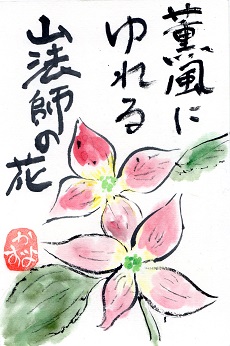 薫風に
ゆれる
山法師の花
かずよ